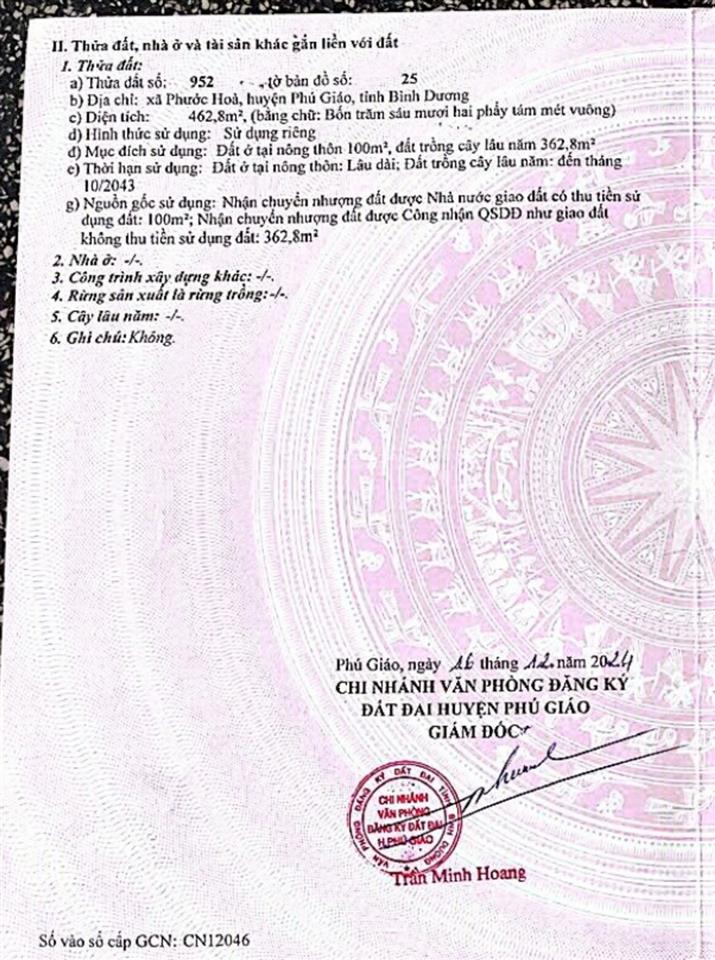 II. Thửa đất, nhà ở và tài sản khác gắn liền với đất
1. Thửa đất:
a) Thửa đất số: 952 tờ bản đồ số: 25
b) Địa chỉ: xã Phước Hoà, huyện Phú Giáo, tỉnh Bình Dương
c) Diện tích: 462,8m², (bằng chữ: Bốn trăm sáu mươi hai phẩy tám mét vuông)
d) Hình thức sử dụng: Sử dụng riêng
đ) Mục đích sử dụng: Đất ở tại nông thôn 100m², đất trồng cây lâu năm 362,8m²
e) Thời hạn sử dụng: Đất ở tại nông thôn: Lâu dài; Đất trồng cây lâu năm: đến tháng
10/2043
g) Nguồn gốc sử dụng: Nhận chuyển nhượng đất được Nhà nước giao đất có thu tiền sử
dụng đất: 100m²; Nhận chuyển nhượng đất được Công nhận QSDĐ như giao đất
không thu tiền sử dụng đất: 362,8m²
2. Nhà ở: -/-.
3. Công trình xây dựng khác: -/-.
4. Rừng sản xuất là rừng trồng: -/-.
5. Cây lâu năm: -/-.
6. Ghi chú: Không.
Phú Giáo, ngày 16 tháng 12 năm 2024
CHI NHÁNH VĂN PHÒNG ĐĂNG KÝ
ĐẤT ĐAI HUYỆN PHÚ GIÁO
GIÁM ĐỐC
VĂN PHÒNG ĐĂNG KÝ ĐẤT ĐAI TỈNH BÌNH DƯƠNG
CHI NHÁNH
VĂN PHÒNG
ĐĂNG KÝ ĐẤT ĐAI
H.PHÚ GIÁO
Trần Minh Hoang
Số vào sổ cấp GCN: CN12046